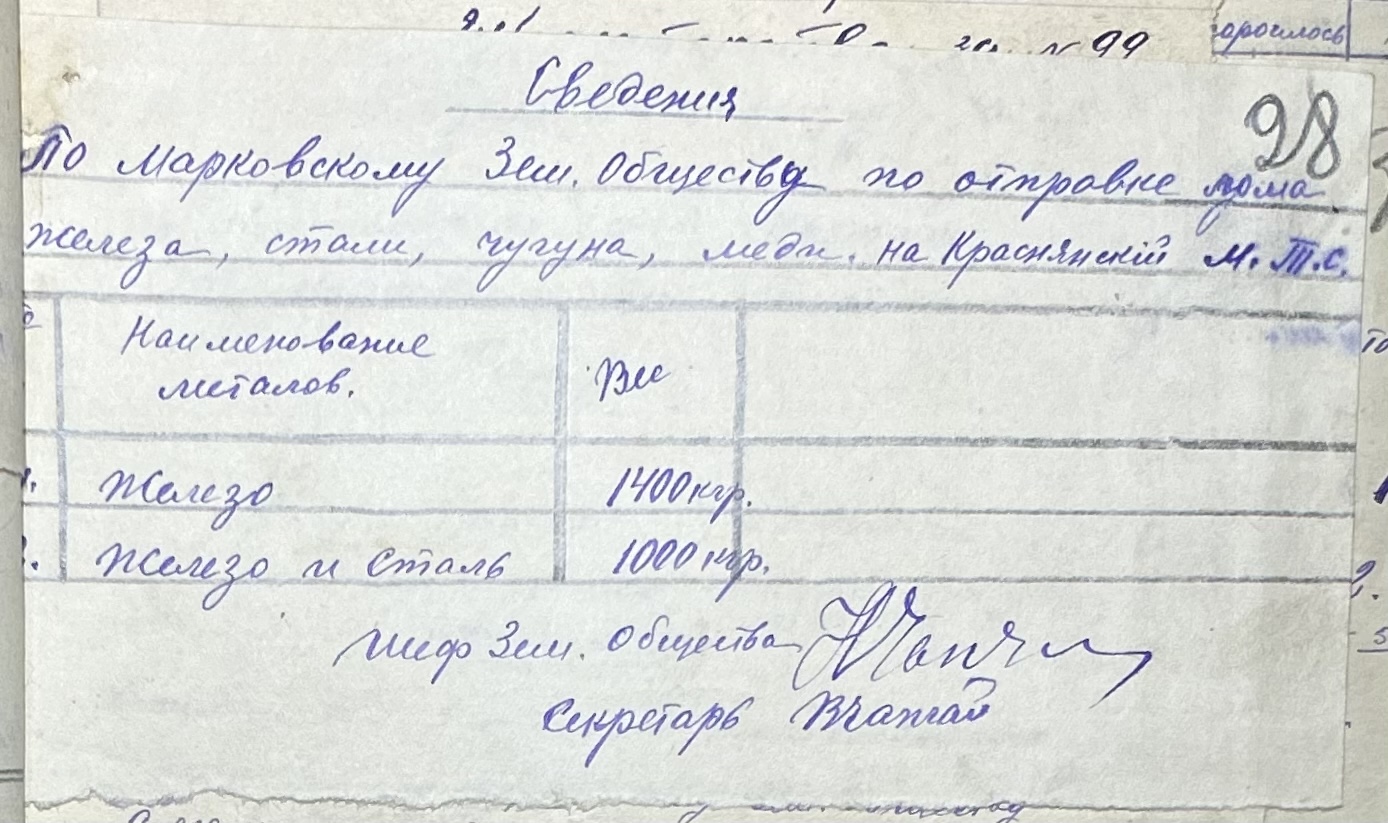 № 99
98
Сведения
По Марковскому Зем. Обществу по отправке лома
железа, стали, чугуна, меди. на Краснянский М.Т.С.
Наименование
металов.
Вес
1. Железо 1400 кгр.
2. Железо и Сталь 1000 кгр.
Шеф Зем. Общества
Секретарь